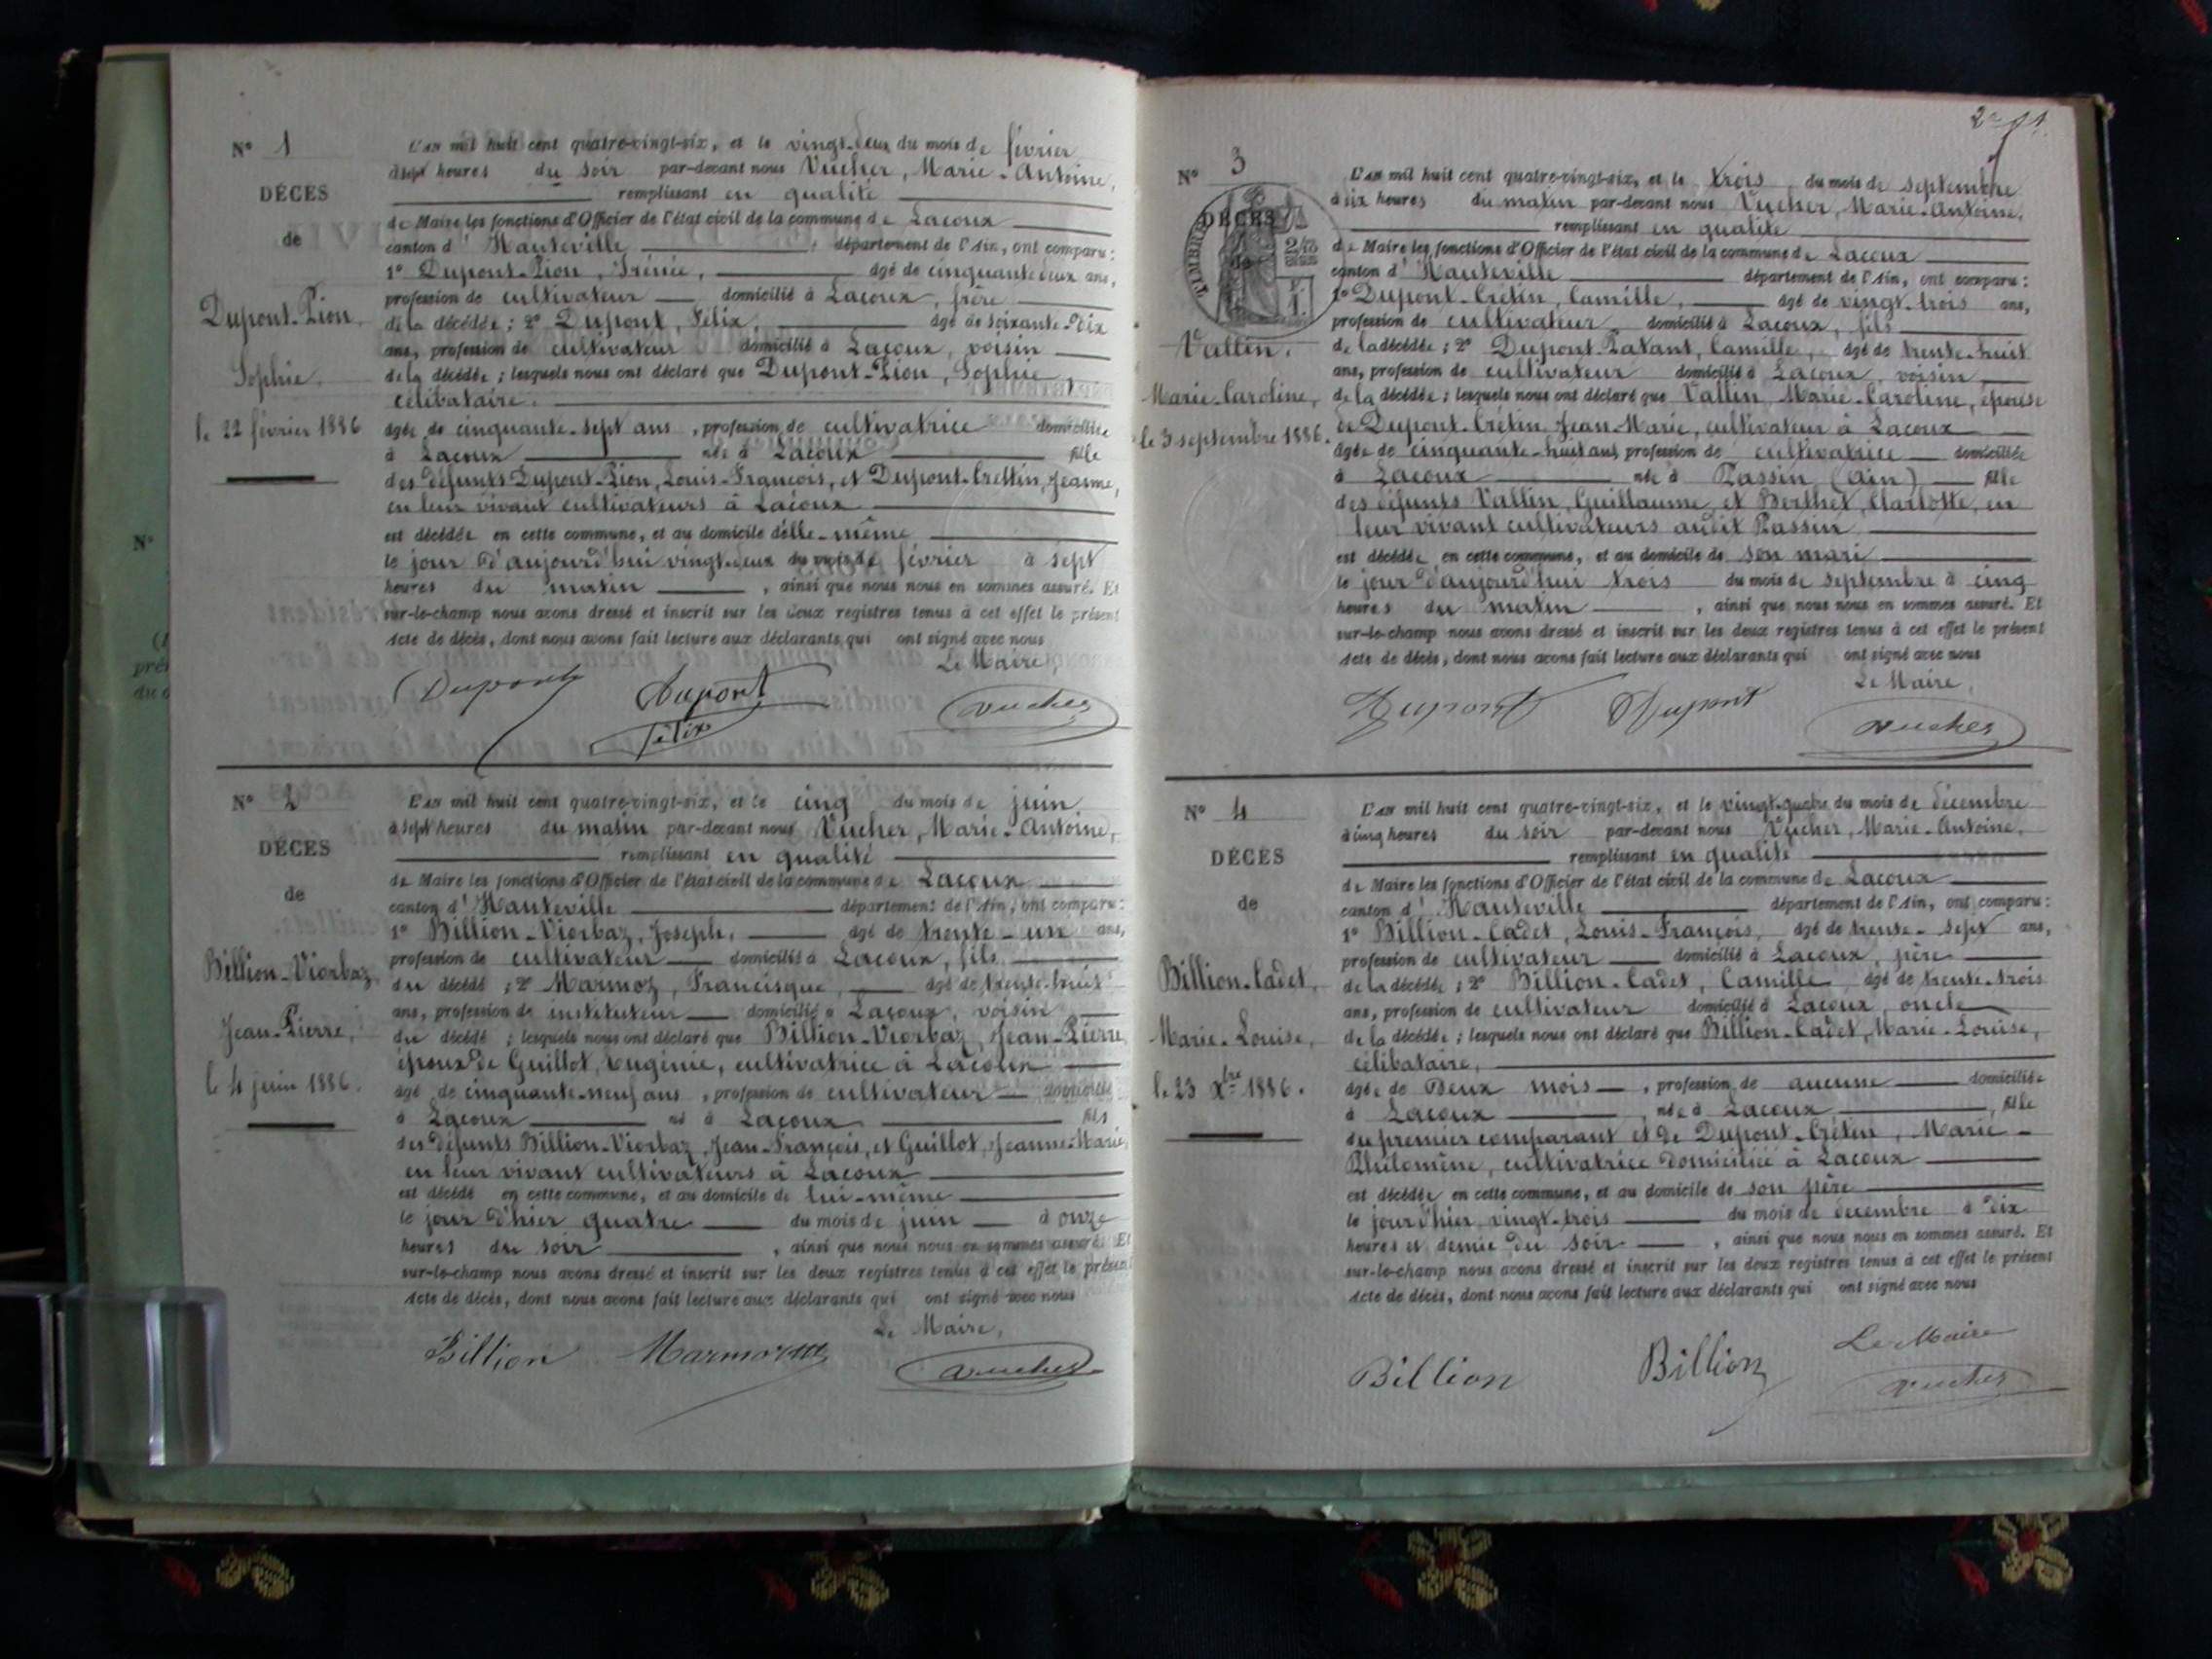 N° 1
DÉCÈS
de
Dupont-Pion,
Sophie.
le 22 février 1886
L'an mil huit cent quatre-vingt-six, et le vingt-deux du mois de février
à sept heures du soir par-devant nous Vucher, Marie-Antoine,
remplissant en qualité
de Maire les fonctions d'Officier de l'état civil de la commune de Lacoux
canton d'Hauteville, département de l'Ain, ont comparu :
1° Dupont-Pion, Irénée, âgé de cinquante-deux ans,
profession de cultivateur domicilié à Lacoux, frère
de la décédée ; 2° Dupont, Félix, âgé de soixante-dix
ans, profession de cultivateur domicilié à Lacoux, voisin
de la décédée ; lesquels nous ont déclaré que Dupont-Pion, Sophie,
célibataire.
âgée de cinquante-sept ans, profession de cultivatrice domiciliée
à Lacoux née à Lacoux fille
des défunts Dupont-Pion, Louis-François, et Dupont-Crettin, Jeanne,
en leur vivant cultivateurs à Lacoux
est décédée en cette commune, et au domicile d'elle-même
le jour d'aujourd'hui vingt-deux du mois de février à sept
heures du matin, ainsi que nous nous en sommes assuré. Et
sur-le-champ nous avons dressé et inscrit sur les deux registres tenus à cet effet le présent
Acte de décès, dont nous avons fait lecture aux déclarants qui ont signé avec nous
Le Maire,
Dupont Dupont Félix Avucher
N° 2
DÉCÈS
de
Billion-Viorbaz,
Jean-Pierre,
le 4 juin 1886.
L'an mil huit cent quatre-vingt-six, et le cinq du mois de juin
à sept heures du matin par-devant nous Vucher, Marie-Antoine,
remplissant en qualité
de Maire les fonctions d'Officier de l'état civil de la commune de Lacoux
canton d'Hauteville département de l'Ain, ont comparu :
1° Billion-Viorbaz, Joseph, âgé de trente-un ans,
profession de cultivateur domicilié à Lacoux, fils
du décédé ; 2° Marmoz, Francisque, âgé de trente-huit
ans, profession de instituteur domicilié à Lacoux, voisin
du décédé ; lesquels nous ont déclaré que Billion-Viorbaz, Jean-Pierre,
époux de Guillot, Eugénie, cultivatrice à Lacoux
âgé de cinquante-neuf ans, profession de cultivateur domicilié
à Lacoux né à Lacoux fils
des défunts Billion-Viorbaz, Jean-François, et Guillot, Jeanne-Marie,
en leur vivant cultivateurs à Lacoux
est décédé en cette commune, et au domicile de lui-même
le jour d'hier quatre du mois de juin à onze
heures du soir, ainsi que nous nous en sommes assuré. Et
sur-le-champ nous avons dressé et inscrit sur les deux registres tenus à cet effet le présent
Acte de décès, dont nous avons fait lecture aux déclarants qui ont signé avec nous
Le Maire,
Billion Avucher
N° 3
DÉCÈS
de
TIMBRE
Vallin,
Marie-Caroline,
le 3 septembre 1886.
L'an mil huit cent quatre-vingt-six, et le trois du mois de septembre
à six heures du matin par-devant nous Vucher, Marie-Antoine,
remplissant en qualité
de Maire les fonctions d'Officier de l'état civil de la commune de Lacoux
canton d'Hauteville département de l'Ain, ont comparu :
1° Dupont-Crétin, Camille, âgé de vingt-trois ans,
profession de cultivateur domicilié à Lacoux, fils
de la décédée ; 2° Dupont-Patant, Camille, âgé de trente-huit
ans, profession de cultivateur domicilié à Lacoux, voisin
de la décédée ; lesquels nous ont déclaré que Vallin, Marie-Caroline, épouse
de Dupont-Crétin, Jean-Marie, cultivateur à Lacoux
âgée de cinquante-huit ans, profession de cultivatrice domiciliée
à Lacoux née à Passin (Ain), fille
des défunts Vallin, Guillaume, et Berthet, Charlotte, en
leur vivant cultivateurs audit Passin
est décédée en cette commune, et au domicile de son mari
le jour d'aujourd'hui trois du mois de septembre à cinq
heures du matin, ainsi que nous nous en sommes assuré. Et
sur-le-champ nous avons dressé et inscrit sur les deux registres tenus à cet effet le présent
Acte de décès, dont nous avons fait lecture aux déclarants qui ont signé avec nous
Le Maire,
Dupont Dupont Avucher
N° 4
DÉCÈS
de
Billion-Cadet,
Marie-Louise,
le 23 Xbre 1886.
L'an mil huit cent quatre-vingt-six, et le vingt-quatre du mois de décembre
à cinq heures du soir par-devant nous Vucher, Marie-Antoine,
remplissant en qualité
de Maire les fonctions d'Officier de l'état civil de la commune de Lacoux
canton d'Hauteville département de l'Ain, ont comparu :
1° Billion-Cadet, Louis-François, âgé de trente-sept ans,
profession de cultivateur domicilié à Lacoux, père
de la décédée ; 2° Billion-Cadet, Camille âgé de trente-trois
ans, profession de cultivateur domicilié à Lacoux, oncle
de la décédée ; lesquels nous ont déclaré que Billion-Cadet, Marie-Louise,
célibataire,
âgée de Deux mois, profession de aucune domiciliée
à Lacoux, née à Lacoux, fille
du premier comparant et de Dupont-Crétin, Marie-
Philomène, cultivatrice domiciliée à Lacoux
est décédée en cette commune, et au domicile de son père
le jour d'hier vingt-trois du mois de décembre à dix
heures et demie du soir, ainsi que nous nous en sommes assuré. Et
sur-le-champ nous avons dressé et inscrit sur les deux registres tenus à cet effet le présent
Acte de décès, dont nous avons fait lecture aux déclarants qui ont signé avec nous
Le Maire
Billion Billion Avucher